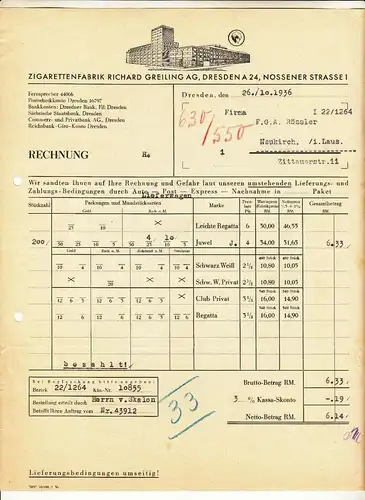 ZIGARETTENFABRIK RICHARD GREILING AG, DRESDEN A 24, NOSSENER STRASSE 1
Fernsprecher 44066
Postscheckkonto Dresden 16797
Bankkonten: Dresdner Bank, Fil. Dresden
Sächsische Staatsbank, Dresden
Commerz- und Privatbank AG., Dresden
Reichsbank-Giro-Konto Dresden
Dresden, den 26./10.1936
630/550
Firma I 22/1264
F.G.A. Rössler
Neukirch, i.Laus.
1 Zittauerstr.11
RECHNUNG
Wir sandten Ihnen auf Ihre Rechnung und Gefahr laut unseren umstehenden Lieferungs- und
Zahlungs-Bedingungen durch Auto — Post — Express — Nachnahme in Paket
Lieferwagen
Stückzahl Packungen und Mundstücksorten Marke Gesamtbetrag RM.
Gold Rach o. M.
25 10 × Leichte Regatta 6 30,00 46,55
4 10
200/ 50 25 10 5 50 25 10 6 3 Juwel J. 4 34,00 31,65 6.33
Schwarz Weiß 2½ 10,80 10,05
20 Schw. W. Privat 2½ 10,80 10,05
12 6 3 12 6 3 × × Club Privat 3⅓ 16,00 14,90
12 6 3 12 6 3 12 6 3 12 6 3 Regatta 3⅓ 16,00 14,90
bezahlt!
Bei Regulierung bitte angeben:
Bezirk 22/1264 Kto.-Nr. 10855
Bestellung erteilt durch Herrn v. Skalon
Betrifft Ihren Auftrag vom Nr. 43912
33
Brutto-Betrag RM. 6.33
3 % Kassa-Skonto -.19
Netto-Betrag RM. 6.14
Lieferungsbedingungen umseitig!